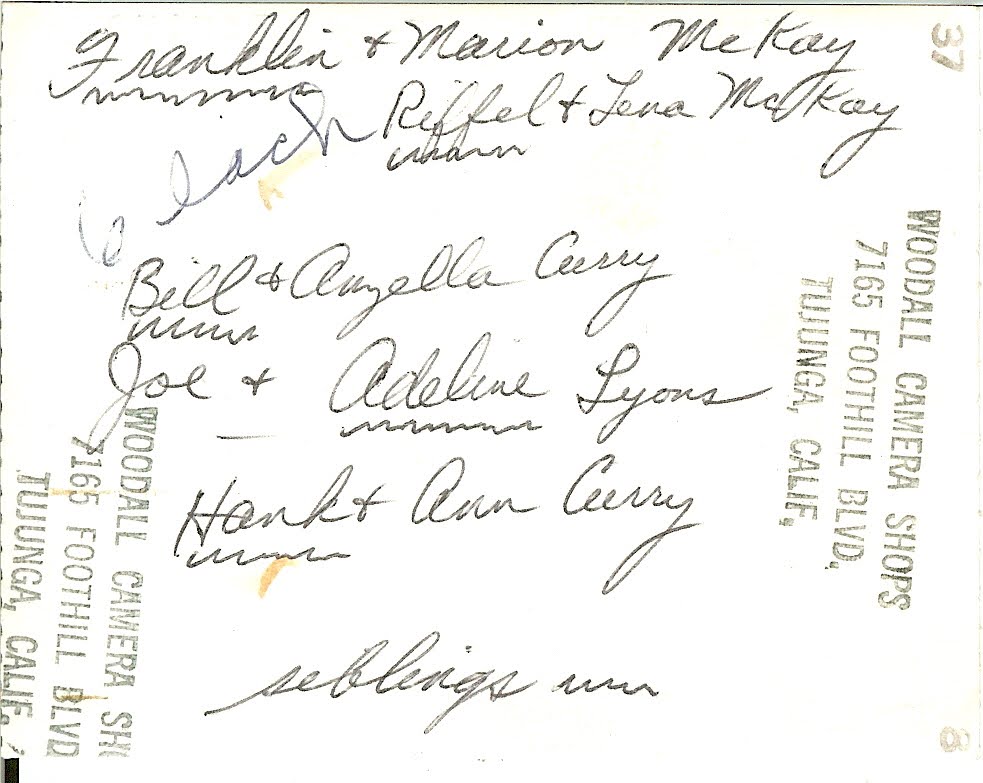 Franklin & Marion McKay
Riffel & Lena McKay
6 each
Bill & Anzella Curry
Joe & Adeline Lyons
Hank & Ann Curry
seblings
WOODALL CAMERA SHOPS
7165 FOOTHILL BLVD.
TUJUNGA, CALIF.
WOODALL CAMERA SH
7165 FOOTHILL BLVD
TUJUNGA, CALIF.
37
8